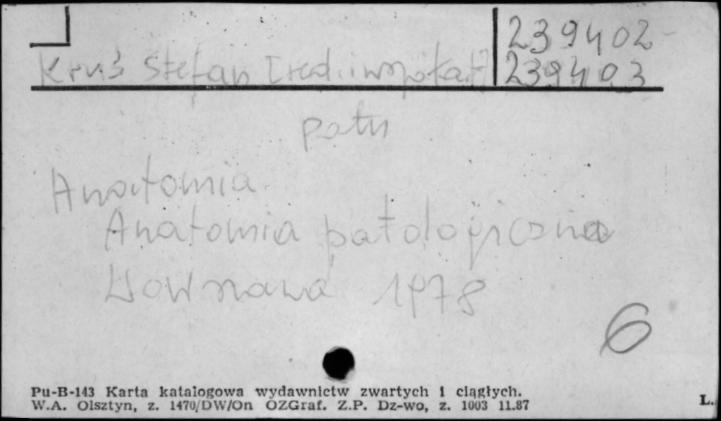 239402-
Kruś Stefan [red. i współaut]
239403
patrz
Anatomia
Anatomia patologiczna
Warszawa 1978
6
Pu-B-143 Karta katalogowa wydawnictw zwartych i ciągłych.
W.A. Olsztyn, z. 1470/DW/On OZGraf. Z.P. Dz-wo, z. 1003 11.87
L.